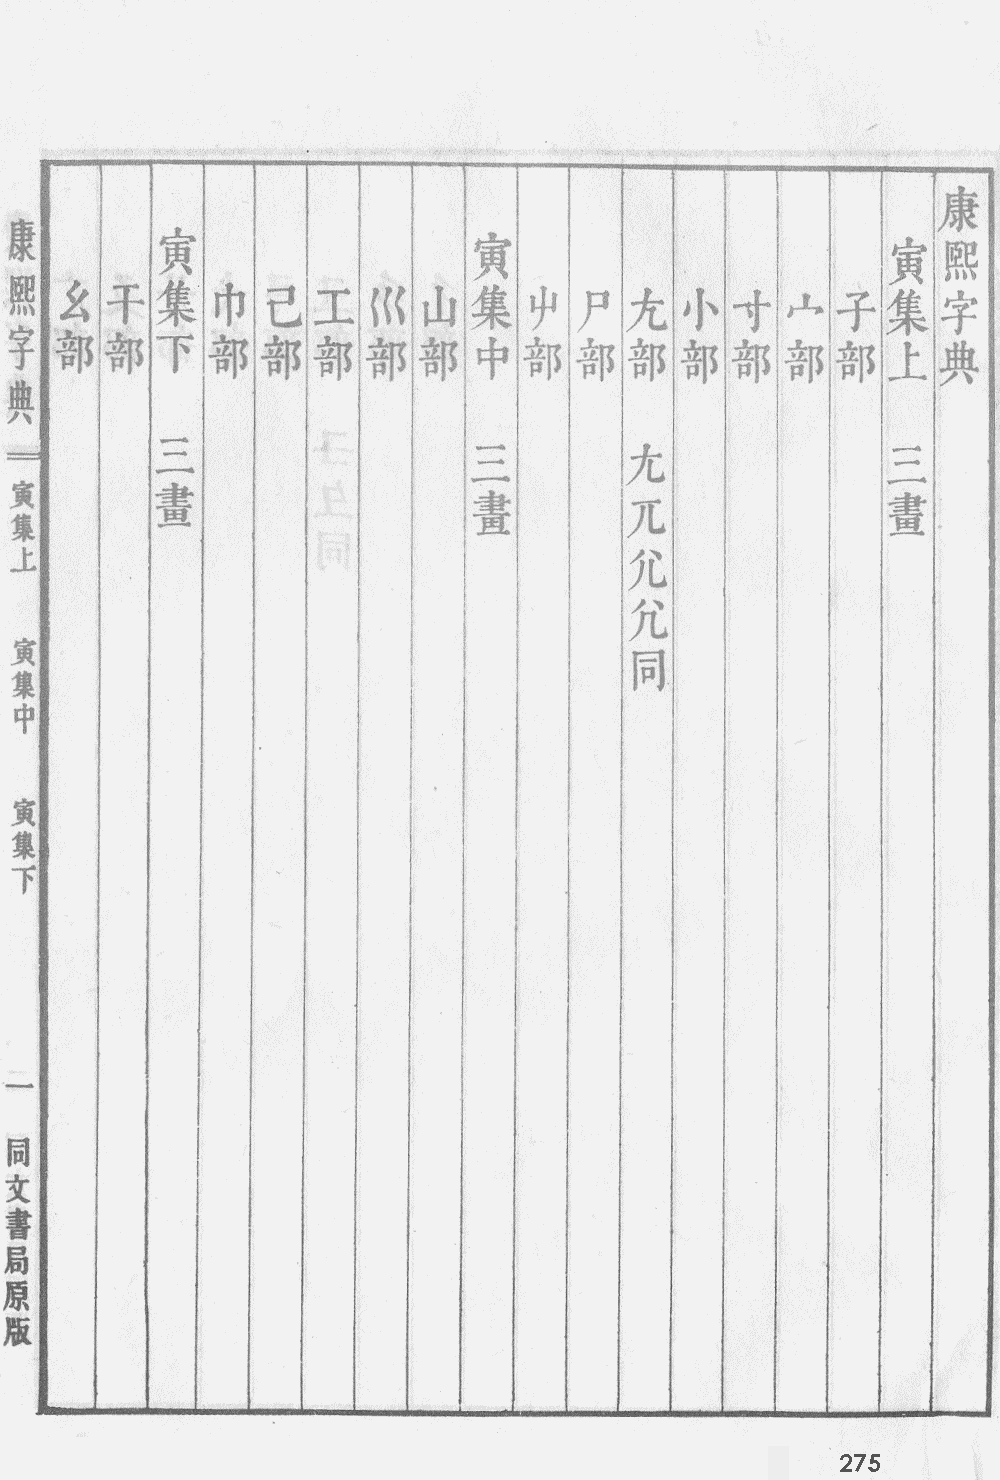 康熙字典
寅集上 三畫
子部
宀部
寸部
小部
尢部 尣兀尣允同
尸部
屮部
寅集中 三畫
山部
巛部
工部
己部
巾部
寅集下 三畫
干部
幺部
康熙字典 寅集上 寅集中 寅集下 一 同文書局原版
275